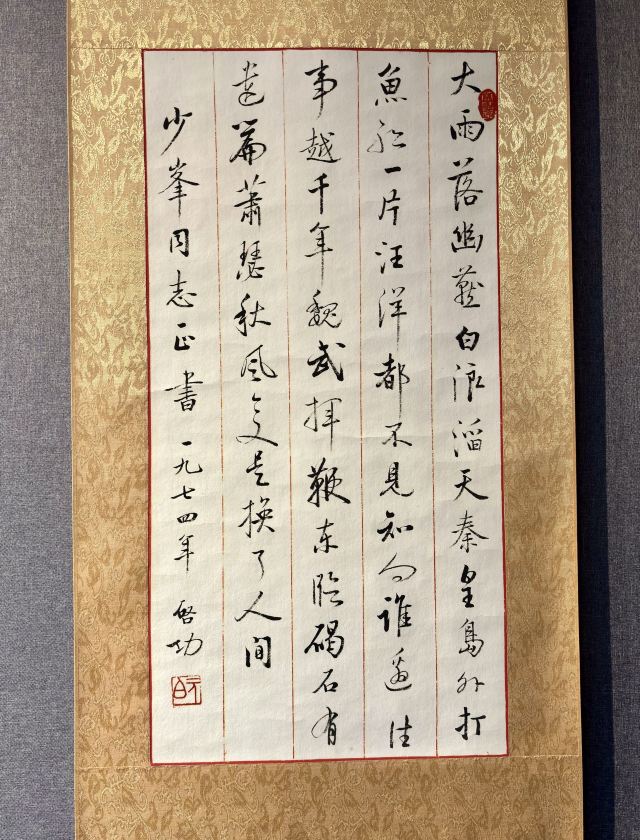 大雨落幽燕白浪滔天秦皇島外打
魚船一片汪洋都不見知向誰邊往
事越千年魏武揮鞭東臨碣石有
遺篇蕭瑟秋風今又是換了人間
少峯同志正書 一九七四年 啓功
元白